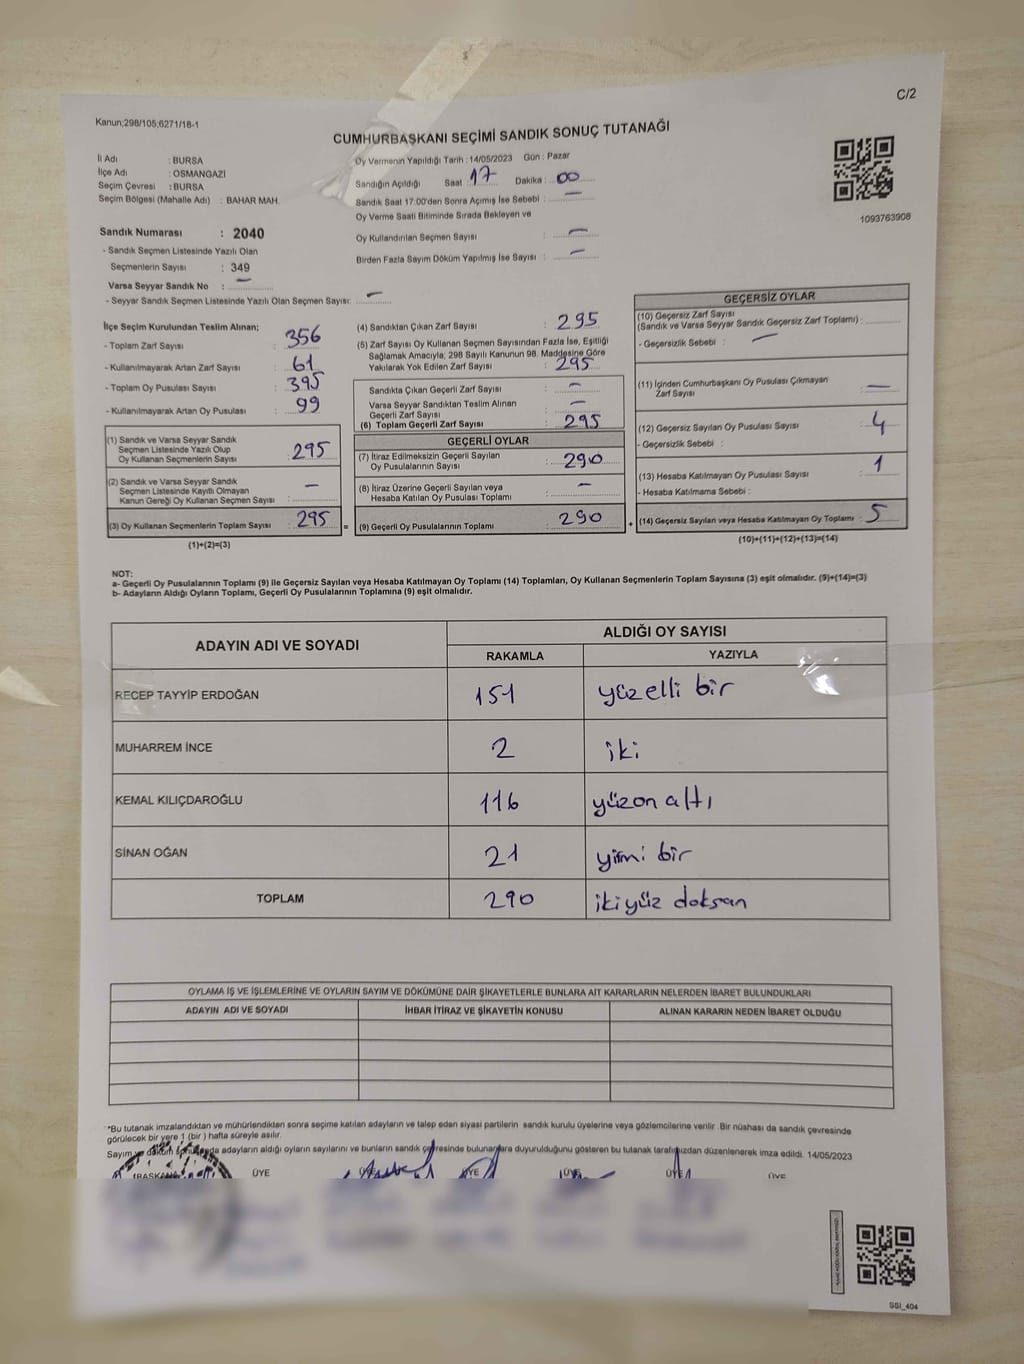 C/2
Kanun;298/105;6271/18-1
CUMHURBAŞKANI SEÇİMİ SANDIK SONUÇ TUTANAĞI
İl Adı : BURSA
İlçe Adı : OSMANGAZİ
Seçim Çevresi : BURSA
Seçim Bölgesi (Mahalle Adı) : BAHAR MAH.
Sandık Numarası : 2040
- Sandık Seçmen Listesinde Yazılı Olan
Seçmenlerin Sayısı : 349
Varsa Seyyar Sandık No : —
- Seyyar Sandık Seçmen Listesinde Yazılı Olan Seçmen Sayısı: —
Oy Vermenin Yapıldığı Tarih : 14/05/2023 Gün : Pazar
Sandığın Açıldığı Saat : 17 Dakika : 00
Sandık Saat 17.00'den Sonra Açımış İse Sebebi : —
Oy Verme Saati Bitiminde Sırada Bekleyen ve
Oy Kullandırılan Seçmen Sayısı : —
Birden Fazla Sayım Döküm Yapılmış İse Sayısı : —
1093763908
İlçe Seçim Kurulundan Teslim Alınan;
- Toplam Zarf Sayısı : 356
- Kullanılmayarak Artan Zarf Sayısı : 61
- Toplam Oy Pusulası Sayısı : 395
- Kullanılmayarak Artan Oy Pusulası : 99
(1) Sandık ve Varsa Seyyar Sandık
Seçmen Listesinde Yazılı Olup
Oy Kullanan Seçmenlerin Sayısı : 295
(2) Sandık ve Varsa Seyyar Sandık
Seçmen Listesinde Kayıtlı Olmayan
Kanun Gereği Oy Kullanan Seçmen Sayısı : —
(3) Oy Kullanan Seçmenlerin Toplam Sayısı : 295 =
(1)+(2)=(3)
(4) Sandıktan Çıkan Zarf Sayısı : 295
(5) Zarf Sayısı Oy Kullanan Seçmen Sayısından Fazla İse, Eşitliği
Sağlamak Amacıyla; 298 Sayılı Kanunun 98. Maddesine Göre
Yakılarak Yok Edilen Zarf Sayısı : 295
Sandıkta Çıkan Geçerli Zarf Sayısı : —
Varsa Seyyar Sandıktan Teslim Alınan
Geçerli Zarf Sayısı : —
(6) Toplam Geçerli Zarf Sayısı : 295
GEÇERLİ OYLAR
(7) İtiraz Edilmeksizin Geçerli Sayılan
Oy Pusulalarının Sayısı : 290
(8) İtiraz Üzerine Geçerli Sayılan veya
Hesaba Katılan Oy Pusulası Toplamı : —
(9) Geçerli Oy Pusulalarının Toplamı : 290 +
GEÇERSİZ OYLAR
(10) Geçersiz Zarf Sayısı
(Sandık ve Varsa Seyyar Sandık Geçersiz Zarf Toplamı) :
- Geçersizlik Sebebi : —
(11) İçinden Cumhurbaşkanı Oy Pusulası Çıkmayan
Zarf Sayısı : —
(12) Geçersiz Sayılan Oy Pusulası Sayısı : 4
- Geçersizlik Sebebi :
(13) Hesaba Katılmayan Oy Pusulası Sayısı : 1
- Hesaba Katılmama Sebebi :
(14) Geçersiz Sayılan veya Hesaba Katılmayan Oy Toplamı : 5
(10)+(11)+(12)+(13)=(14)
NOT:
a- Geçerli Oy Pusulalarının Toplamı (9) ile Geçersiz Sayılan veya Hesaba Katılmayan Oy Toplamı (14) Toplamları, Oy Kullanan Seçmenlerin Toplam Sayısına (3) eşit olmalıdır. (9)+(14)=(3)
b- Adayların Aldığı Oyların Toplamı, Geçerli Oy Pusulalarının Toplamına (9) eşit olmalıdır.
ADAYIN ADI VE SOYADI ALDIĞI OY SAYISI
RAKAMLA YAZIYLA
RECEP TAYYİP ERDOĞAN 151 yüzelli bir
MUHARREM İNCE 2 iki
KEMAL KILIÇDAROĞLU 116 yüzon altı
SİNAN OĞAN 21 yirmi bir
TOPLAM 290 ikiyüz doksan
OYLAMA İŞ VE İŞLEMLERİNE VE OYLARIN SAYIM VE DÖKÜMÜNE DAİR ŞİKAYETLERLE BUNLARA AİT KARARLARIN NELERDEN İBARET BULUNDUKLARI
ADAYIN ADI VE SOYADI İHBAR İTİRAZ VE ŞİKAYETİN KONUSU ALINAN KARARIN NEDEN İBARET OLDUĞU
*Bu tutanak imzalandıktan ve mühürlendikten sonra seçime katılan adayların ve talep eden siyasi partilerin sandık kurulu üyelerine veya gözlemcilerine verilir. Bir nüshası da sandık çevresinde
görülecek bir yere 1 (bir ) hafta süreyle asılır.
Sayım ve döküm sonucunda adayların aldığı oyların sayılarını ve bunların sandık çevresinde bulunanlara duyurulduğunu gösteren bu tutanak tarafımızdan düzenlenerek imza edildi. 14/05/2023
BAŞKAN ÜYE ÜYE ÜYE ÜYE ÜYE ÜYE
SSI_404